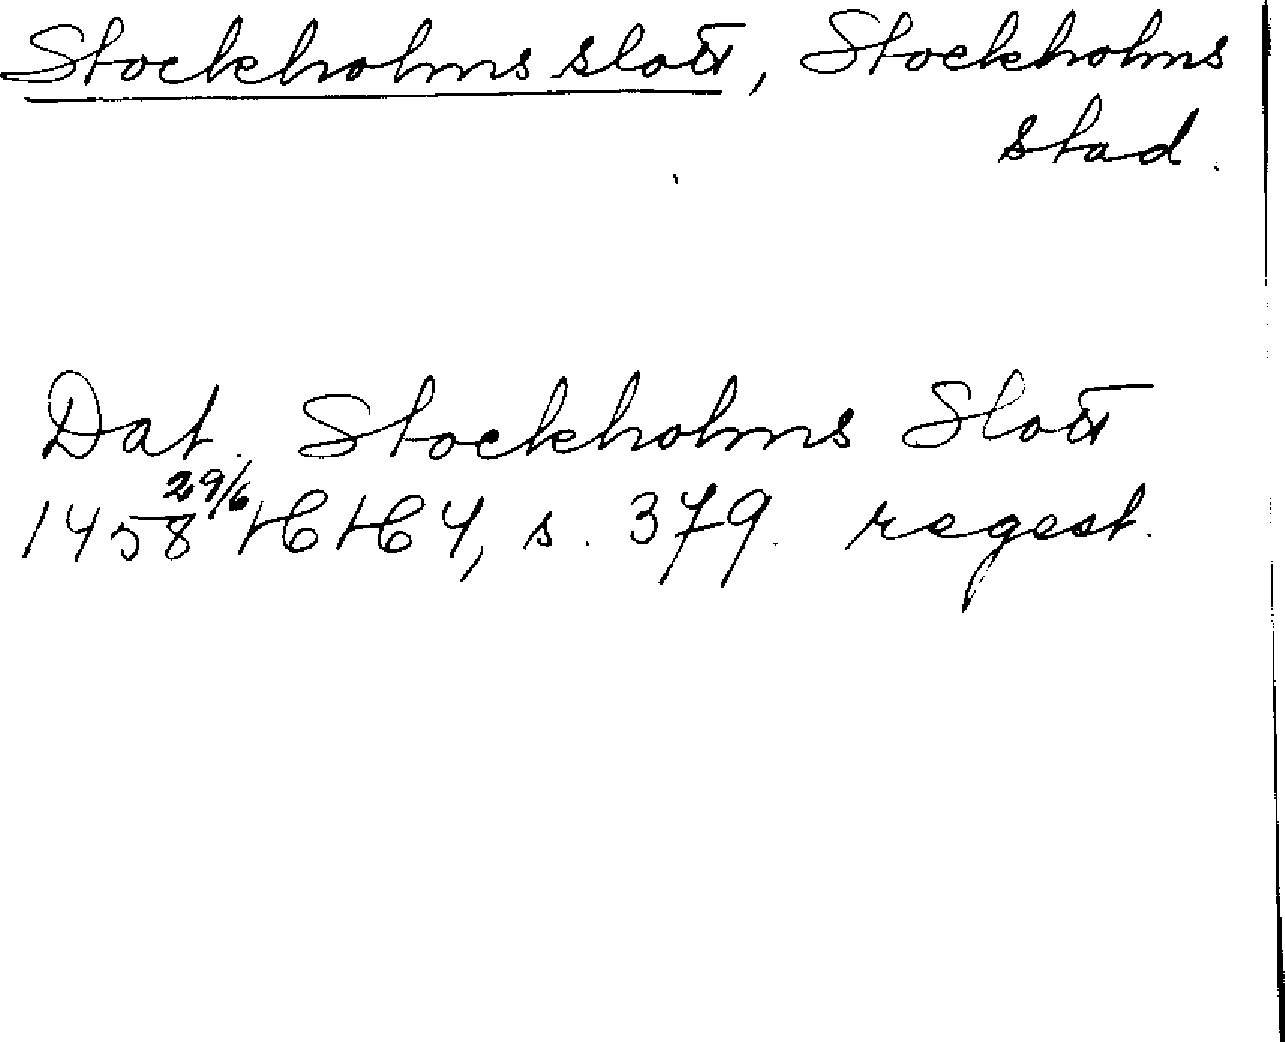 Stockholms slott, Stockholms
stad.
Dat. Stockholms Slott
1458 29/6 HH 4, s. 379. regest.